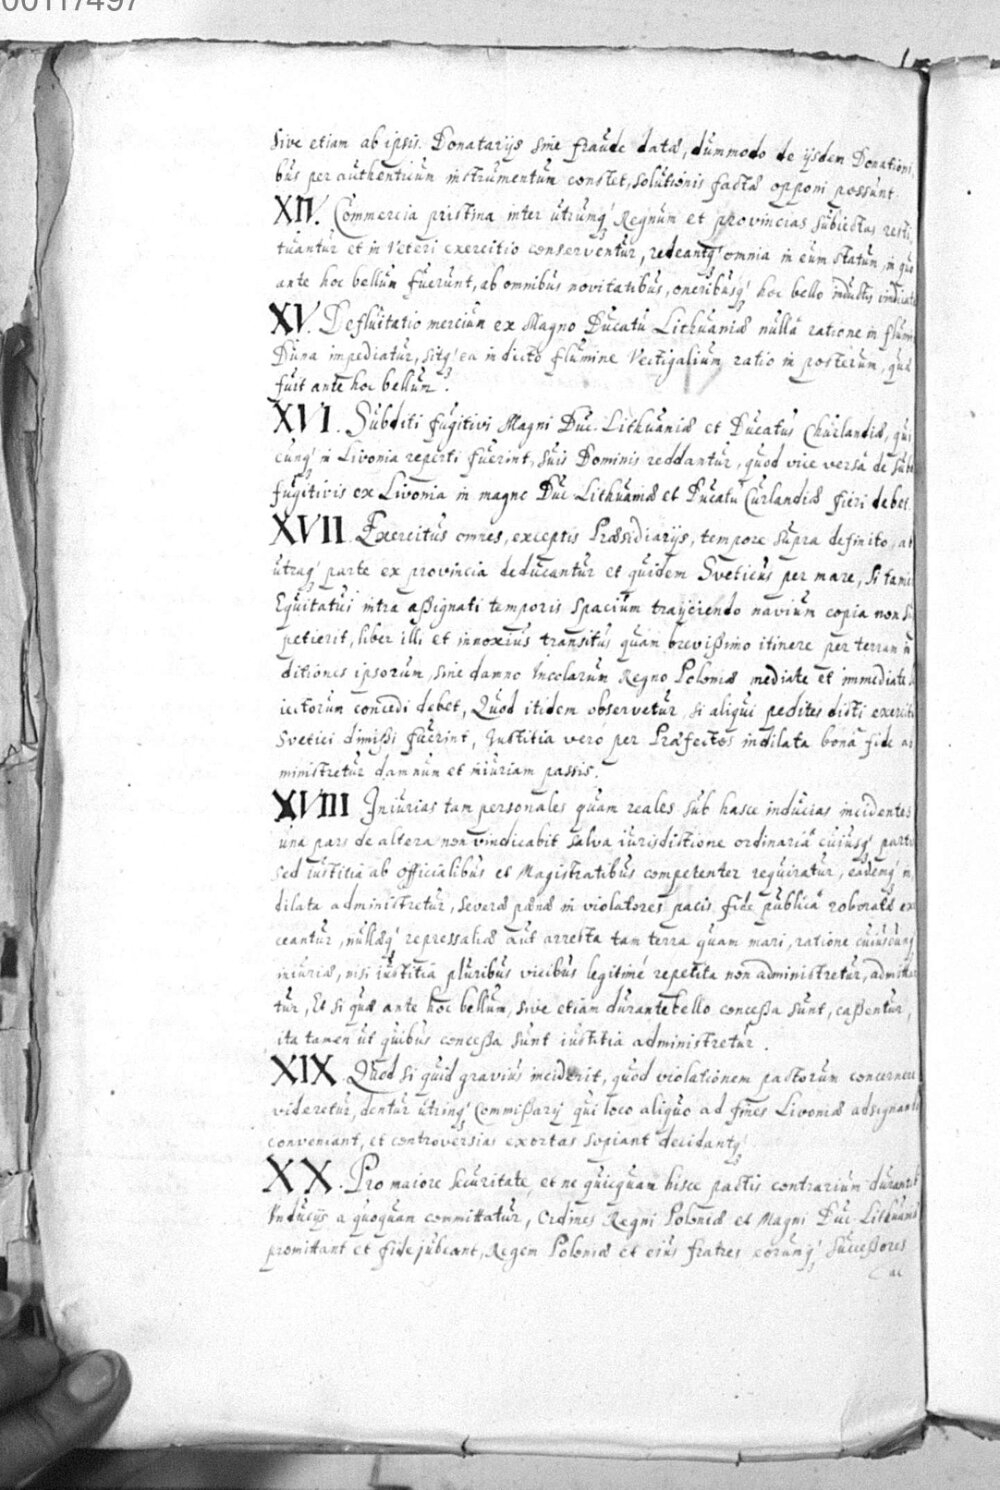 00117497
sive etiam ab ipsis Donatarijs sine fraude datæ, dummodo de ijsdem Donationi,
bus per authenticum instrumentum constet, solutionis factæ opponi possunt.
XIV. Commercia pristina inter utrumq' Regnum et provincias subiectas resti,
tuantur et in veteri exercitio conserventur, redeantq' omnia in eum statum, in quo
ante hoc bellum fuerunt, ab omnibus novitatibus, oneribusq' hoc bello inductis vindicata
XV. Defluitatio merciũ ex Magno Ducatu Lithuaniæ nullâ ratione in flumi
Duna impediatur, sitq' ea in dicto flumine Vectigalium ratio in posterum, quæ
fuit ante hoc bellum.
XVI. Subditi fugitivi Magni Duc. Lithuaniæ et Ducatus Churlandiæ, qui
cunq' in Livonia reperti fuerint, suis Dominis reddantur, quod vice versâ de subd
fugitivis ex Livonia in magno Duc Lithuaniæ et Ducatu Curlandiæ fieri debet.
XVII. Exercitus omnes, exceptis Præsidiarijs, tempore supra definito, ab
utraq' parte ex provincia deducantur et quidem Sveticus per mare, Si tamen
Equitatui intra assignati temporis spacium trayciendo navium copia non su
petierit, liber illi et innoxius transitus quam brevissimo itinere per terram in
ditiones ipsorum, sine damno Incolarum Regno Poloniæ mediate et immediate s
iectorum concedi debet, Quod itidem observetur, si aliqui pedites dicti exercitu
Svetici dimissi fuerint, Iustitia vero per Præfectos indilata bona fide ad
ministretur damnum et iniuriam passis.
XVIII Iniurias tam personales quam reales sub hasce inducias incidentes
una pars de altera non vindicabit salva iurisdictione ordinariâ cuiusq' partis
sed iustitia ab officialibus et Magistratibus competenter requiratur, eademq' in
dilata administretur, severæ pænæ in violatores pacis fide publicâ roboratæ ex
ceantur, nullæq' repressaliæ aut arresta tam terra quam mari, ratione cuiuscunq'
iniuriæ, nisi iustitia pluribus vicibus legitimé repetita non administretur, admittan
tur, Et si quæ ante hoc bellum, sive etiam durante bello concessa sunt, cassentur,
ita tamen ut quibus concessa sunt iustitia administretur.
XIX. Quod si quid gravius inciderit, quod violationem pactorum concernere
videretur, dentur utrinq' Commissarij qui loco aliquo ad fines Livoniæ adsignando
conveniant, et controversias exortas sopiant decidantq'
XX. Pro maiore securitate, et ne quicquam hisce pactis contrarium durantib
Inducijs a quoquam committatur, Ordines Regni Poloniæ et Magni Duc. Lithuaniæ
promittant et fide jubeant, Regem Poloniæ et eius fratres eorumq' Successores
ac